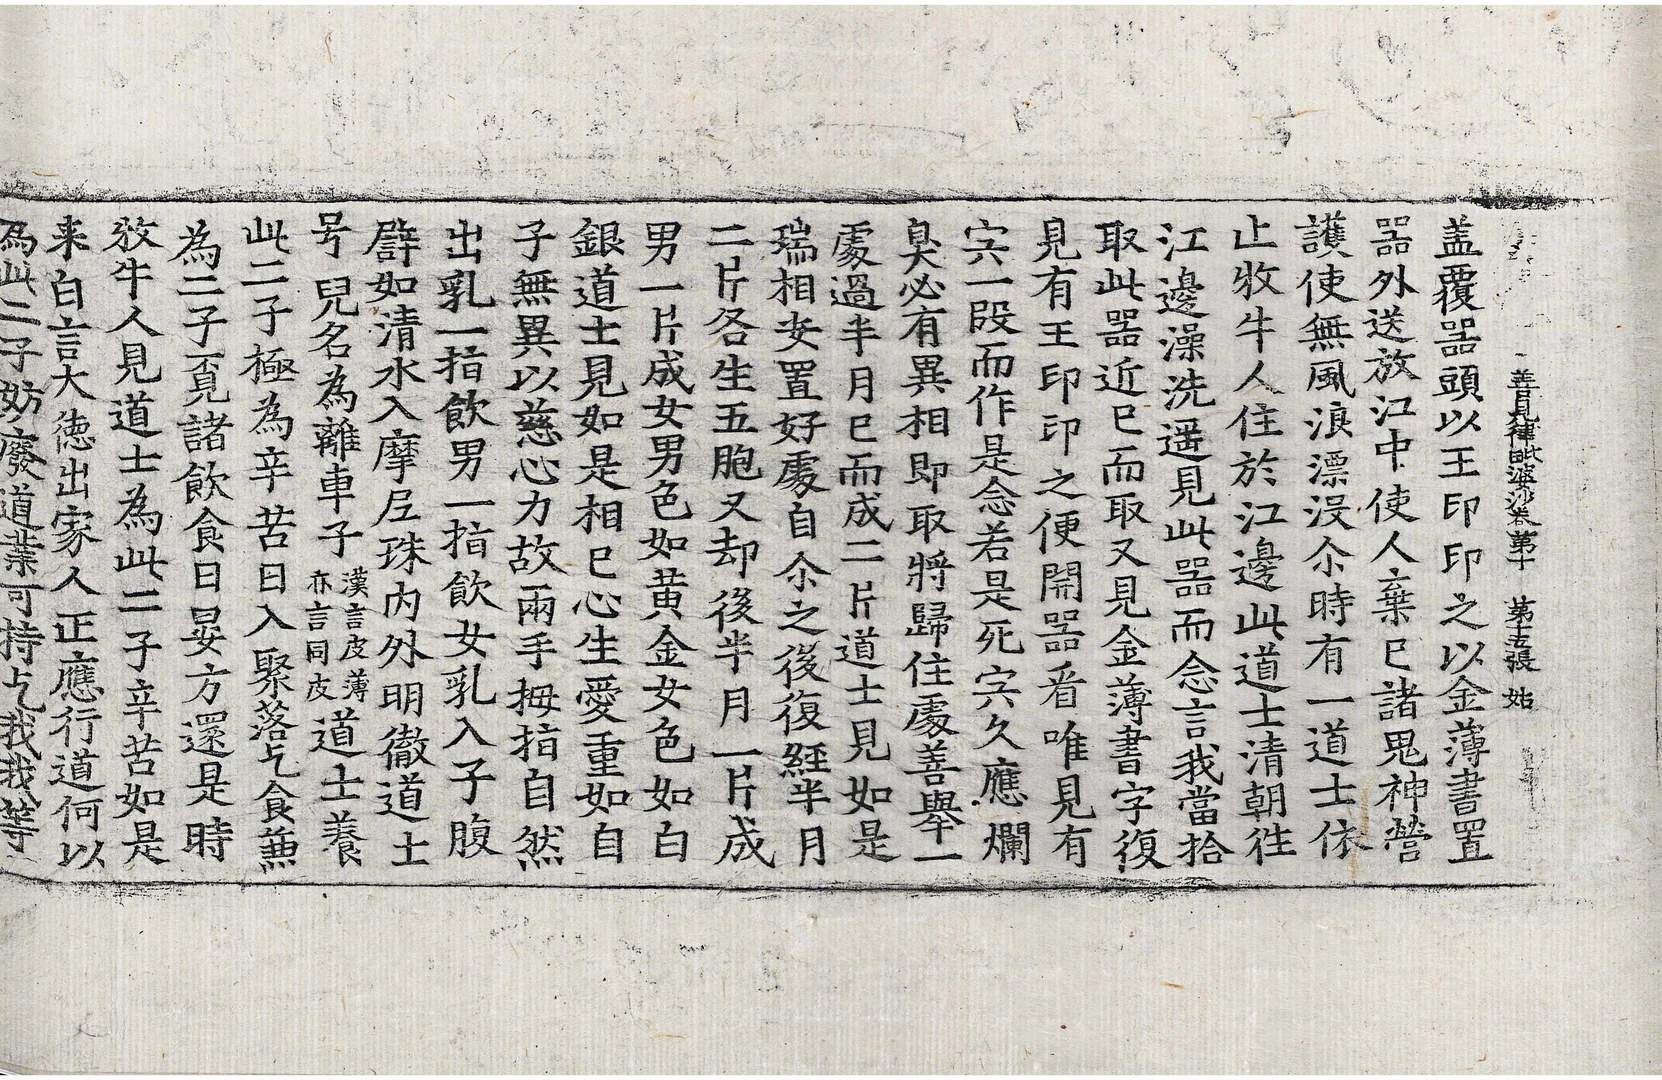 善見律毗婆沙卷第十 第十五張 始
盖覆器頭以王印印之以金薄書置
器外送放江中使人棄已諸鬼神營
護使無風浪漂没尒時有一道士依
止牧牛人住於江邊此道士清朝往
江邊澡洗遥見此器而念言我當拾
取此器近已而取又見金薄書字復
見有王印印之便開器看唯見有
宍一段而作是念若是死宍久應爛
臭必有異相即取將歸住處善舉一
處過半月已而成二片道士見如是
瑞相安置好處自尒之後復經半月
二片各生五胞又却後半月一片成
男一片成女男色如黄金女色如白
銀道士見如是相已心生愛重如自
子無異以慈心力故兩手拇指自然
出乳一指飲男一指飲女乳入子腹
譬如清水入摩尼珠内外明徹道士
号兒名為離車子漢言皮薄亦言同皮道士養
此二子極為辛苦日入聚落乞食兼
為二子覓諸飲食日晏方還是時
牧牛人見道士為此二子辛苦如是
来白言大徳出家人正應行道何以
為此二子妨廢道業可持乞我我等